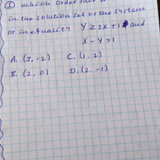 ① which order
in the solution set of the system
of inequality y ≥ 3x + 1 and
x - y > 1
A. (3, -2) C. (1, 2)
B. (2, 0) D. (2, -1)